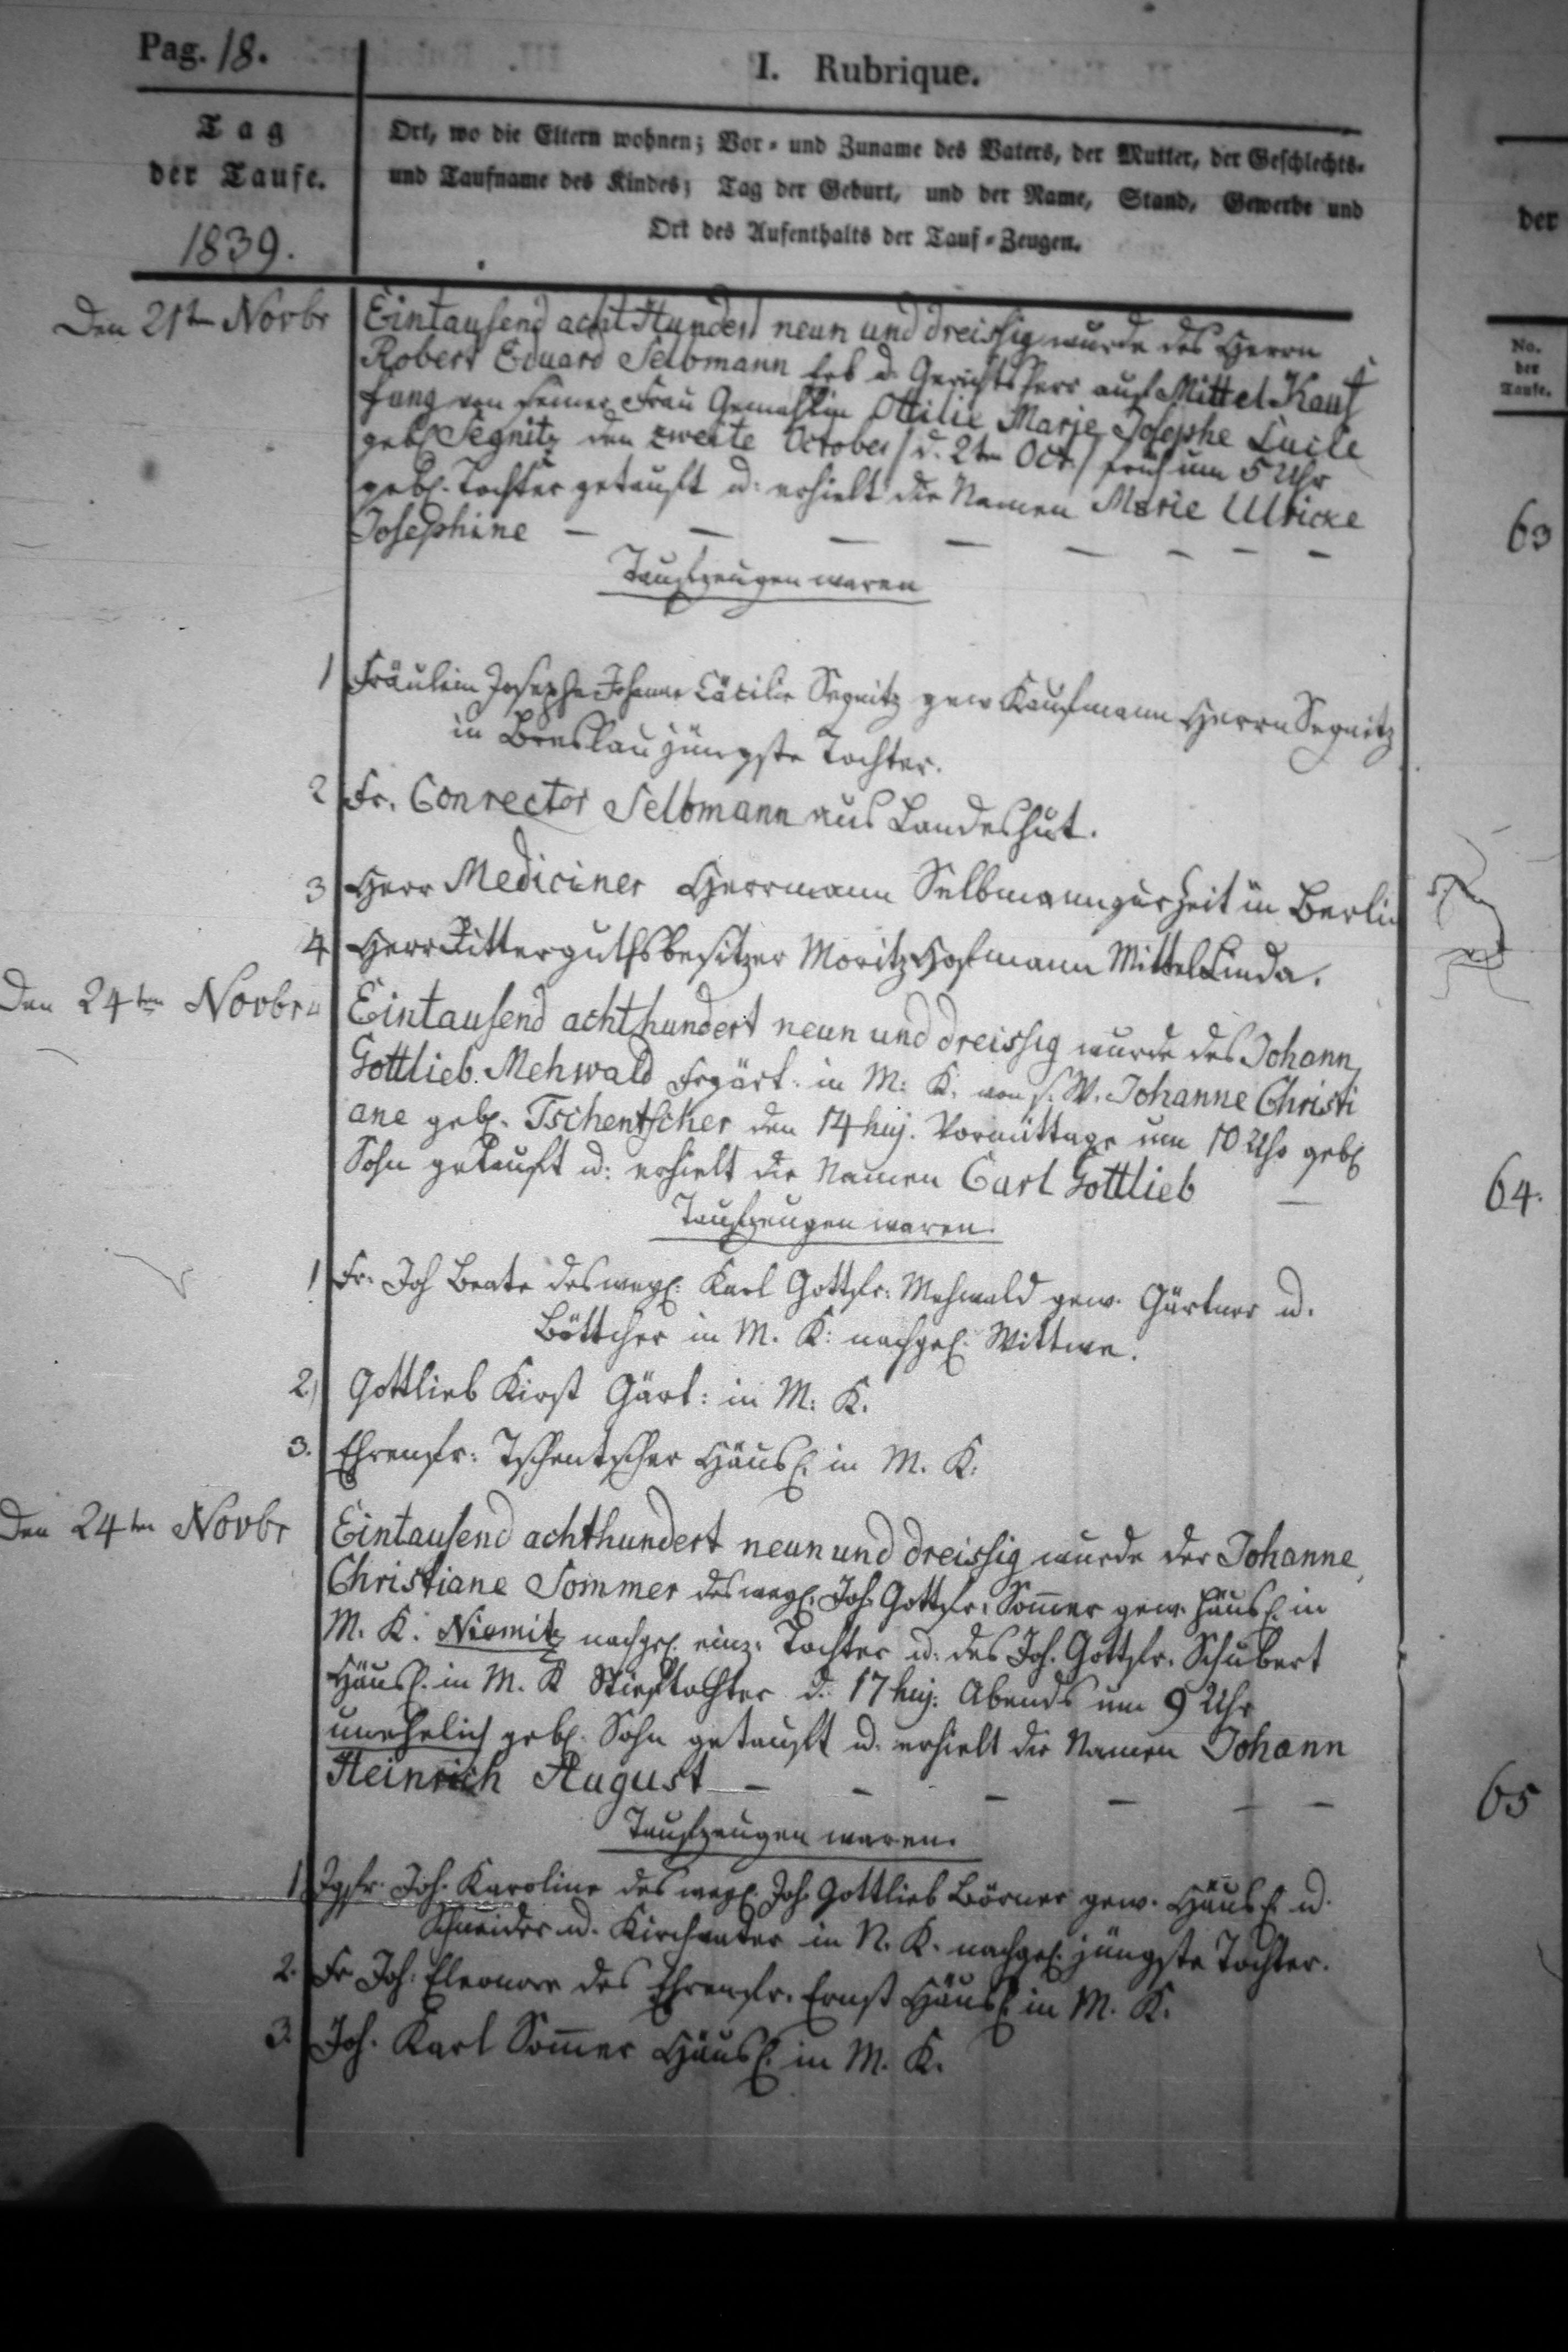 Pag. 18.
I. Rubrique.
Tag
der Taufe.
1839.
Ort, wo die Eltern wohnen; Vor- und Zuname des Vaters, der Mutter, der Geschlechts-
und Taufname des Kindes; Tag der Geburt, und der Name, Stand, Gewerbe und
Ort des Aufenthalts der Tauf-Zeugen.
der
No.
der
Taufe.
Den 21ten Novbr
Eintausend acht Hundert neun und dreissig wurde des Herrn
Robert Eduard Selbmann Erb d. Gerichtsherr auf Mittel Kauf
fung von seiner Frau Gemahlin Ottilie Marie Josephe Lucile
geb. Segnitz den zweite October / d. 2ten Oct. / früh um 5 Uhr
geb. Tochter getauft u: erhielt die Namen Marie Ulricke
Josephine — — — — — — — —
63
Taufzeugen waren
1 Fräulein Josepha Johanne Cäcilie Segnitz gew Kaufmann Herrn Segnitz
in Breslau jüngste Tochter.
2 Fr. Conrector Selbmann aus Landeshut.
3 Herr Mediciner Herrmann Selbmann zur Zeit in Berlin
4 Herr Ritterguthsbesitzer Moritz Hofmann Mittel Linda.
Den 24ten Novbr
Eintausend achthundert neun und dreissig wurde des Johann
Gottlieb Mehwald Frgärt. in M: K. von s. W. Johanne Christi
ane geb. Tschentscher den 14 huj. Vormittags um 10 Uhr geb
Sohn getauft u: erhielt die Namen Carl Gottlieb —
64.
Taufzeugen waren.
1 Fr. Joh Beate des weyl. Karl Gottfr. Mehwald gew. Gärtner u.
Böttcher in M. K: nachgel. Wittwe.
2) Gottlieb Kirst Gärt: in M: K.
3. Ehrenfr: Tschentscher Häusl. in M. K:
Den 24ten Novbr
Eintausend achthundert neun und dreissig wurde der Johanne
Christiane Sommer des weyl. Joh. Gottfr. Som̄er gew. Häusl. in
M. K. Niemitz nachgel. einz. Tochter u. des Joh. Gottfr. Schubert
Häusl. in M. K Stieftochter d. 17 huj. Abends um 9 Uhr
unehelich geb. Sohn getauft u. erhielt die Namen Johann
Heinrich August — — — — — —
65
Taufzeugen waren.
1 Jgfr. Joh. Karoline des weyl. Joh. Gottlieb Börner gew. Häusl. u.
Schneider u. Kirchvater in N. K. nachgel. jüngste Tochter.
2. Fr Joh. Eleonore des Ehrenfr. Ernst Häusl. in M. K.
3. Joh. Karl Som̄er Häusl. in M. K.